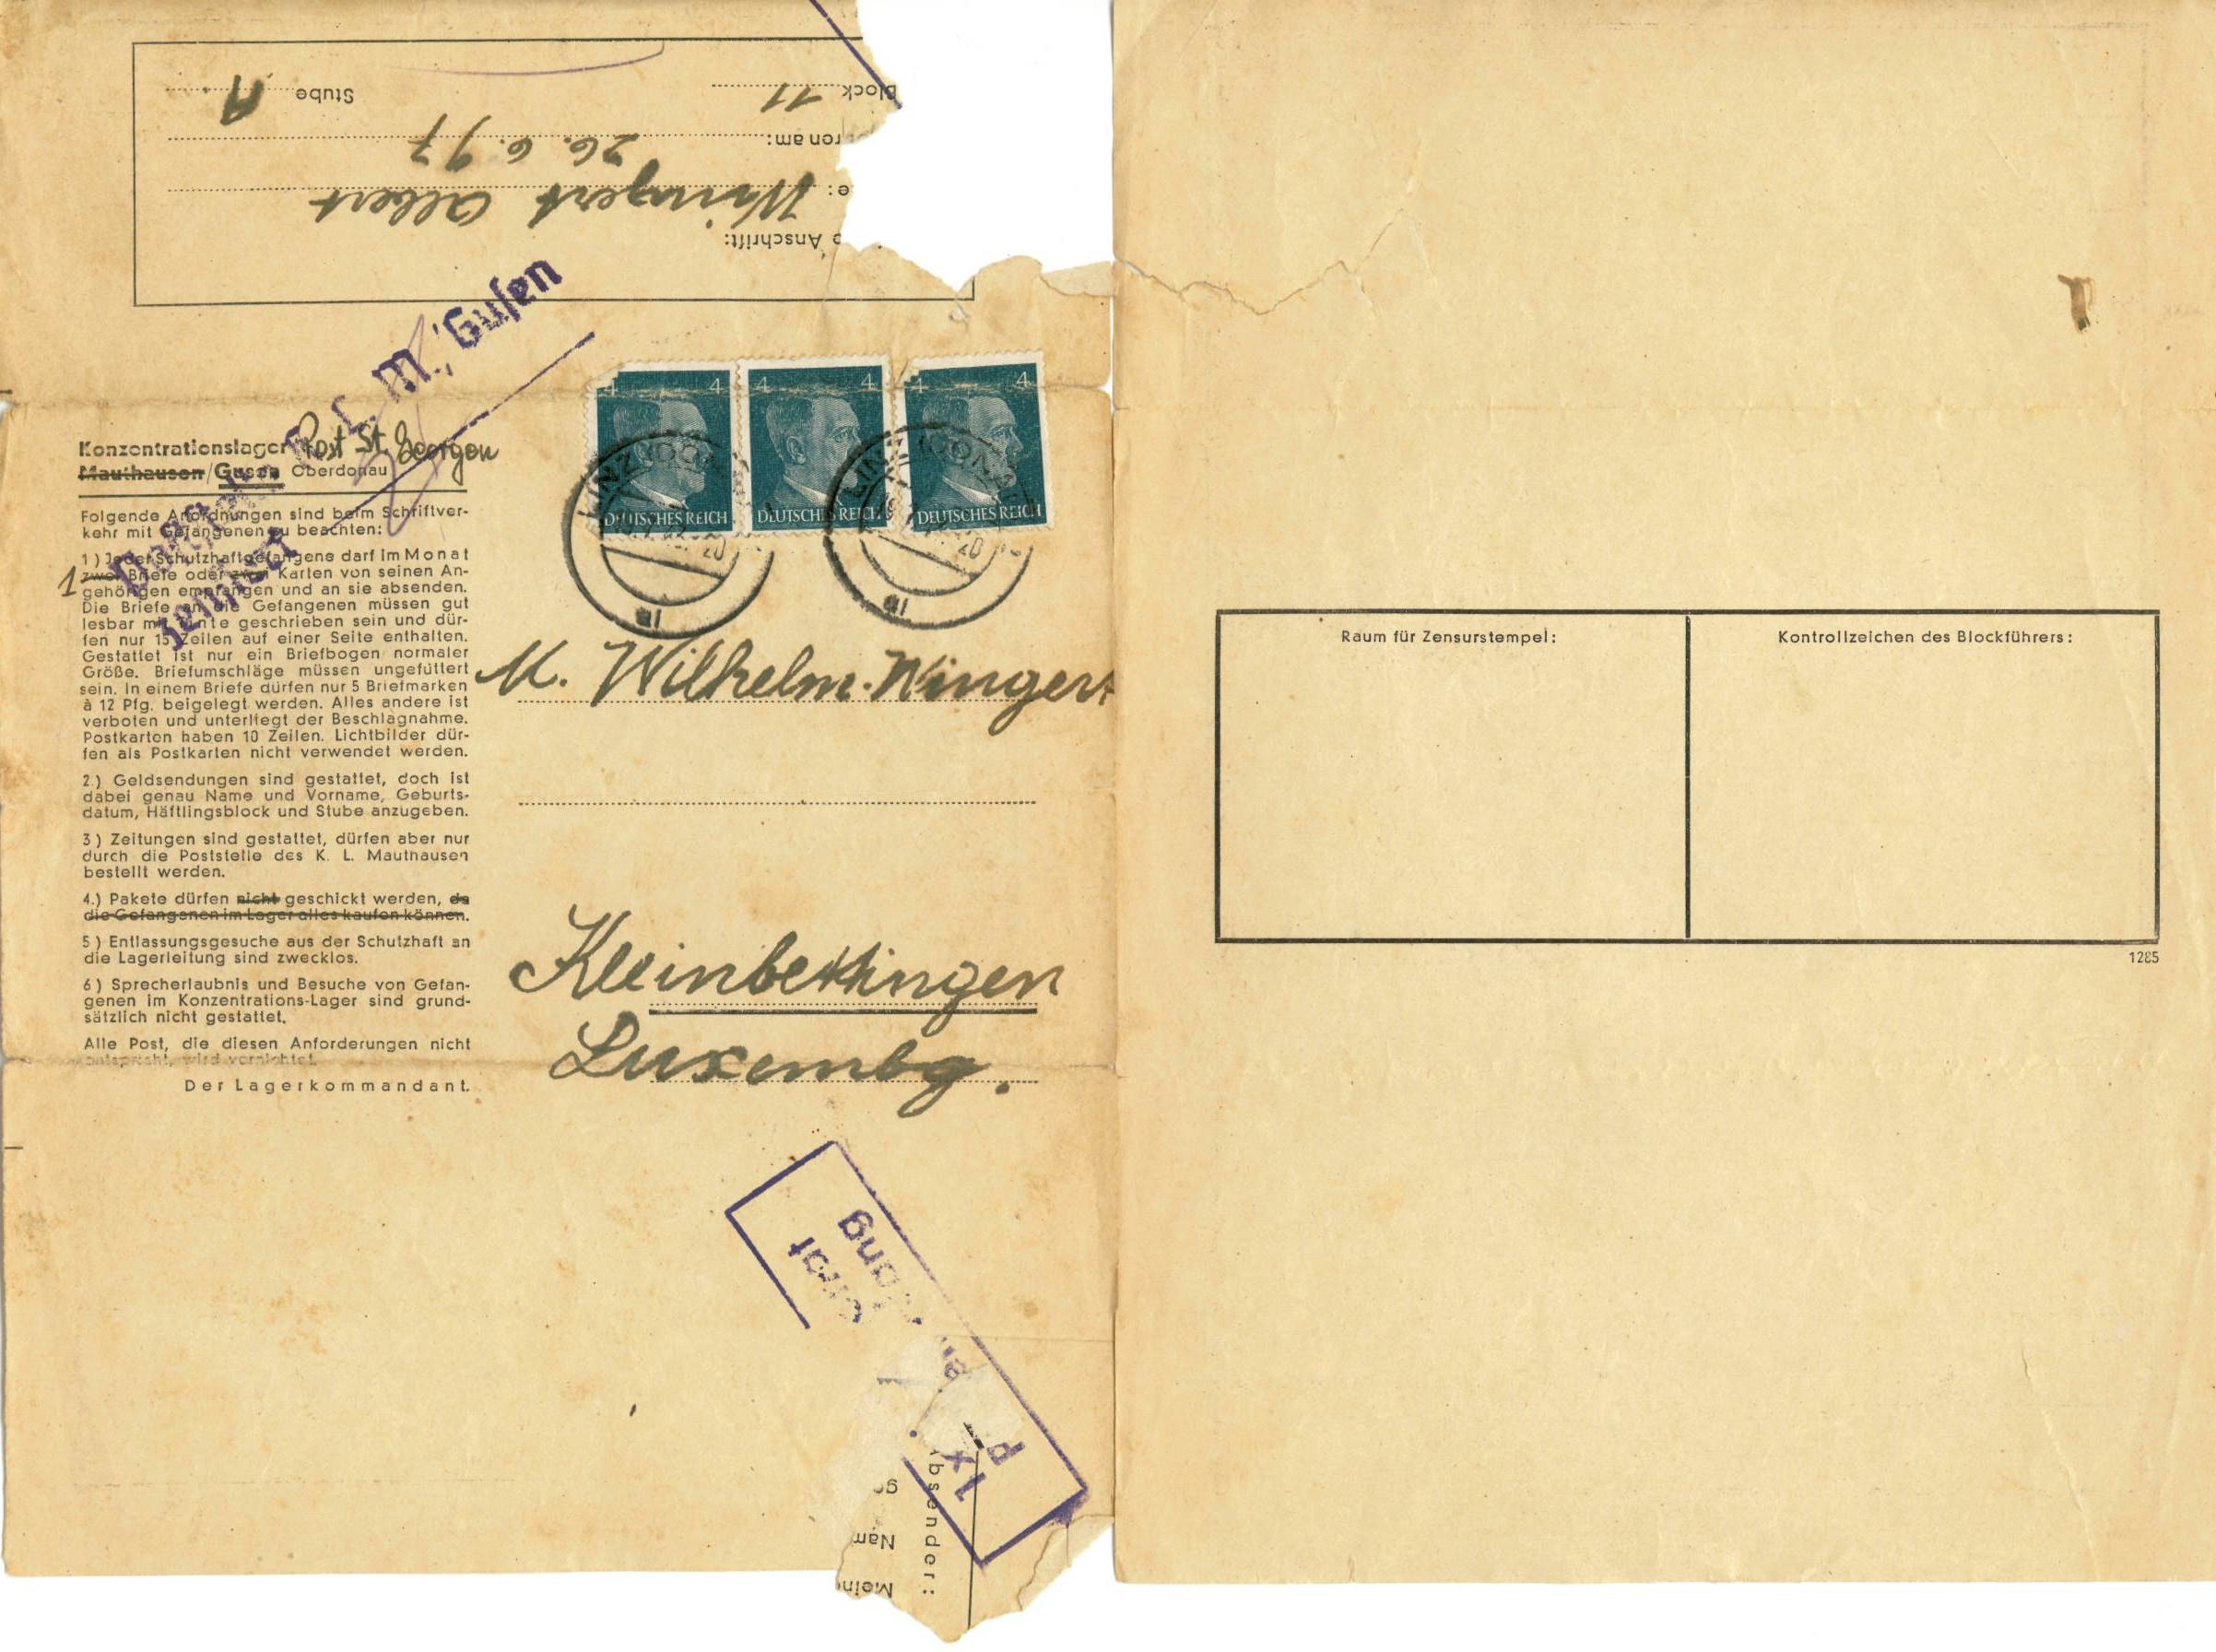 Meine Anschrift:
Name: Wingert Albert
geboren am: 26. 6. 97
Block 11 Stube A.
M., Gusen
Konzentrationslager Post St. Georgen
Mauthausen/Gusen Oberdonau
Folgende Anordnungen sind beim Schriftver-
kehr mit Gefangenen zu beachten:
1) Jeder Schutzhaftgefangene darf im Monat
1 zwei Briefe oder zwei Karten von seinen An-
gehörigen empfangen und an sie absenden.
Die Briefe an die Gefangenen müssen gut
lesbar mit Tinte geschrieben sein und dür-
fen nur 15 Zeilen auf einer Seite enthalten.
Gestattet ist nur ein Briefbogen normaler
Größe. Briefumschläge müssen ungefüttert
sein. In einem Briefe dürfen nur 5 Briefmarken
à 12 Pfg. beigelegt werden. Alles andere ist
verboten und unterliegt der Beschlagnahme.
Postkarten haben 10 Zeilen. Lichtbilder dür-
fen als Postkarten nicht verwendet werden.
2.) Geldsendungen sind gestattet, doch ist
dabei genau Name und Vorname, Geburts-
datum, Häftlingsblock und Stube anzugeben.
3) Zeitungen sind gestattet, dürfen aber nur
durch die Poststelle des K. L. Mauthausen
bestellt werden.
4.) Pakete dürfen nicht geschickt werden, da
die Gefangenen im Lager alles kaufen können.
5) Entlassungsgesuche aus der Schutzhaft an
die Lagerleitung sind zwecklos.
6) Sprecherlaubnis und Besuche von Gefan-
genen im Konzentrations-Lager sind grund-
sätzlich nicht gestattet.
Alle Post, die diesen Anforderungen nicht
entspricht, wird vernichtet.
Der Lagerkommandant.
4 4 4 4 4 4
DEUTSCHES REICH DEUTSCHES REICH DEUTSCHES REICH
LINZ (DONAU)
LINZ (DONAU)
M. Wilhelm. Wingert
Kleinbettingen
Luxembg.
Absender:
Mein
Nam
ge
Raum für Zensurstempel:
Kontrollzeichen des Blockführers:
1285